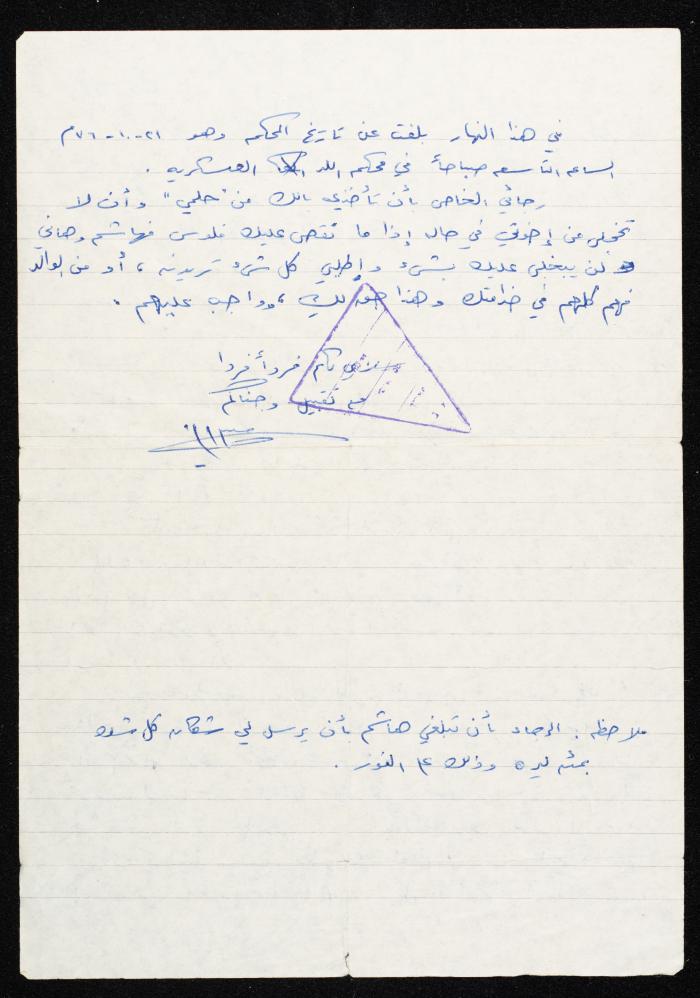 في هذا النهار بلغت عن تاريخ المحكمه وهو ٢١-١٠-٧٦م
الساعه التاسعه صباحاً في محكم اللد العسكريه .
رجائي الخاص بأن تأخذي بالك من "حلمي" وأن لا
تخجلي من إخوتي في حال إذا ما نقص عليك فلوس فهاشم وهاني
لن يبخلى عليك بشيء وإطلبي كل شيء تريدينه ، أو من الوالد
فهم كلهم في خدامتك وهذا حق لكِ ، وواجب عليهم .
لكم فرداً فردا
مع تقبيل وجناتكم
ملاحظه : الرجاء بأن تبلغي هاشم بأن يرسل لي شكات كل شهر
بمئه ليره وذلك ع الفور .